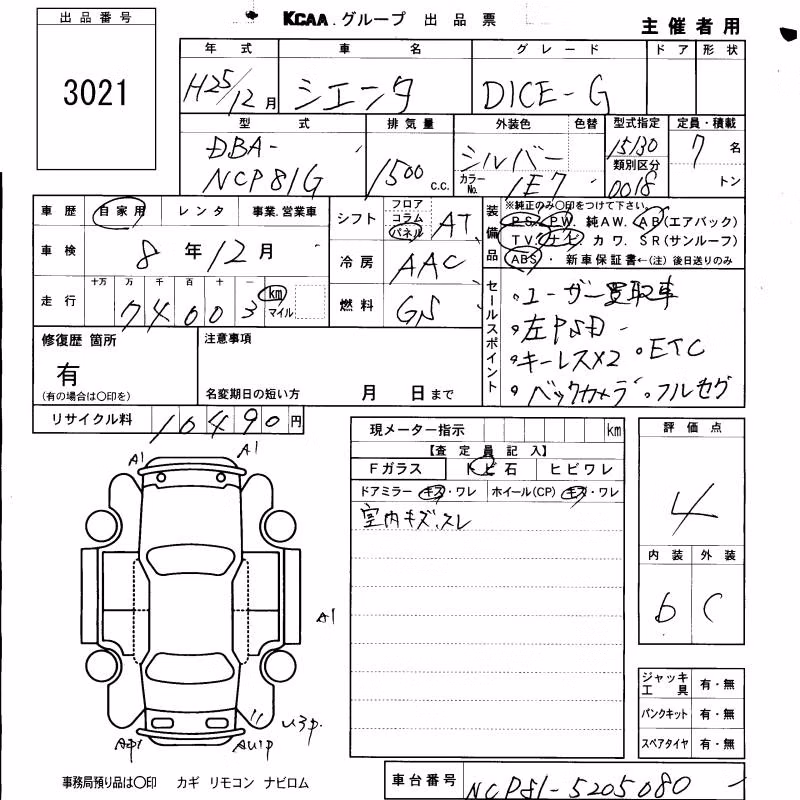 出品番号
3021
KCAA.グループ 出品票
主催者用
年式 車名 グレード ドア 形状
H25/12月 シエンタ DICE-G
型式 排気量 外装色 色替 型式指定 定員・積載
DBA- NCP81G 1500 c.c. シルバー 15130 7名
カラーNo. 1E7 類別区分 0018 トン
車歴 自家用 レンタ 事業.営業車
シフト フロア コラム パネル AT
装備品 ※純正のみ〇印をつけて下さい。
PS. PW. 純AW. AB(エアバック)
TV. ナビ カワ. SR(サンルーフ)
ABS・ 新車保証書←(注)後日送りのみ
車検 8年12月
冷房 AAC
走行 十万 万 千 百 十 一 km マイル
74003
燃料 GS
セールスポイント
・ユーザー買取車
・左PSD
・キーレスX2 ・ETC
・バックカメラ・フルセグ
修復歴 箇所 注意事項
有
(有の場合は〇印を) 名変期日の短い方 月 日まで
リサイクル料 10490円
現メーター指示 km
【査定員記入】
Fガラス トビ石 ヒビワレ
ドアミラー キズ・ワレ ホイール(CP) キズ・ワレ
室内キズ.スレ
評価点
4
内装 外装
b C
A1 A1
A1
U3P.
AP1 AU1P
ジャッキ工具 有・無
パンクキット 有・無
スペアタイヤ 有・無
事務局預り品は〇印 カギ リモコン ナビロム
車台番号 NCP81-5205080